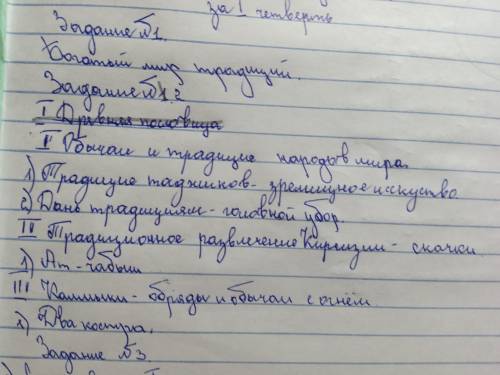 за I четверть
Задание №1.
Богатый мир традиций.
Задание №2
I Древняя пословица
I Обычаи и традиции народов мира.
1) Традиции таджиков - зрелищное искуство.
2) Дань традициям - головной убор.
II Традиционное развлечение Киргизии - скачки
1) Ат - чабыш
III Калмыки - обряды и обычаи с огнём.
1) Два костра.
Задание №3.